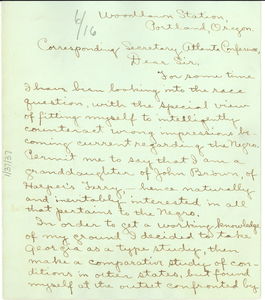 6/16
Woodlawn Station,
Portland, Oregon.
Corresponding Secretary Atlanta Conference,
Dear Sir.
For some time
I have been looking into the race
question, with the special view
of fitting myself to intelligently
counteract wrong impressions be-
coming current regarding the Negro.
Permit me to say that I am a
granddaughter of John Brown, of
Harper's Ferry,— hence naturally
and inevitably interested in all
that pertains to the Negro.
In order to get a working knowledge
of my ground I decided to take
Georgia as a type study, then
make a comparative study of con-
ditions in other states, but found
myself at the outset confronted by